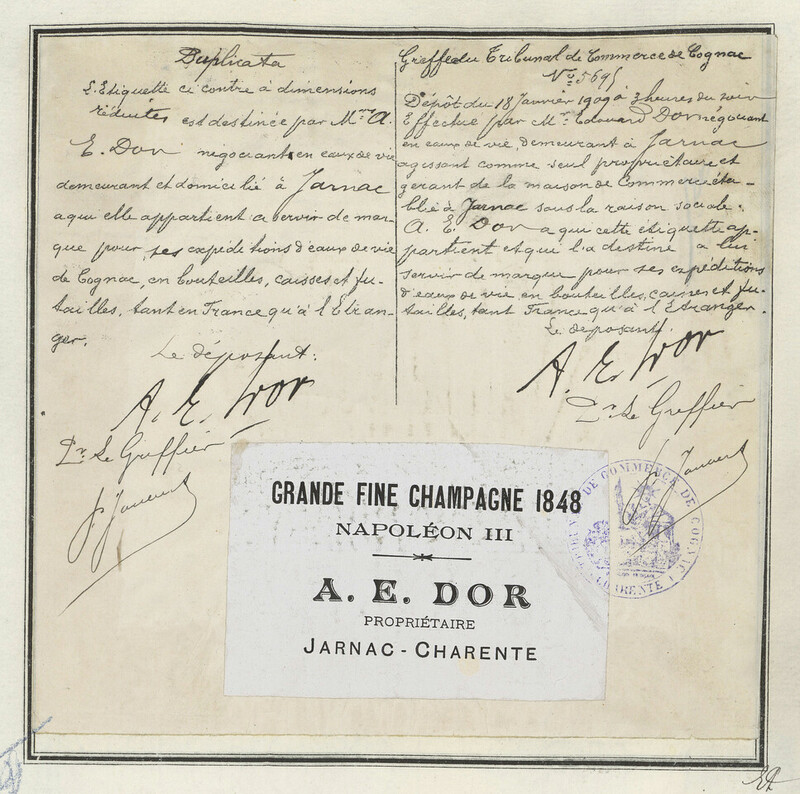 Duplicata
L'Etiquette ci contre à dimensions
réduites est destinée par Mr A.
E. Dor négociant en eaux de vie
demeurant et domicilié à Jarnac
a qui elle appartient a servir de mar-
que pour ses expéditions d'eaux de vie
de Cognac, en bouteilles, caisses et fu-
tailles, tant en France qu'à l'Etran-
ger.
Le déposant:
A. E. Dor
Pr. Le Greffier
Greffe du Tribunal de Commerce de Cognac
No 5695
Dépôt du 18 Janvier 1909 à 3 heures du soir
Effectué par Mr. Edouard Dor négociant
en eaux de vie demeurant à Jarnac
agissant comme seul propriétaire et
gérant de la maison de Commerce éta-
blie à Jarnac sous la raison sociale:
A. E. Dor a qui cette étiquette ap-
partient et qui l'a destine a lui
servir de marque pour ses expéditions
d'eaux de vie en bouteilles, caisses et fu-
tailles, tant France qu'à l'Etranger.
Le déposant.
A. E. Dor
Pr. Le Greffier
GRANDE FINE CHAMPAGNE 1848
NAPOLÉON III
A. E. DOR
PROPRIÉTAIRE
JARNAC - CHARENTE
DE COMMERCE DE COGNAC
CHARENTE